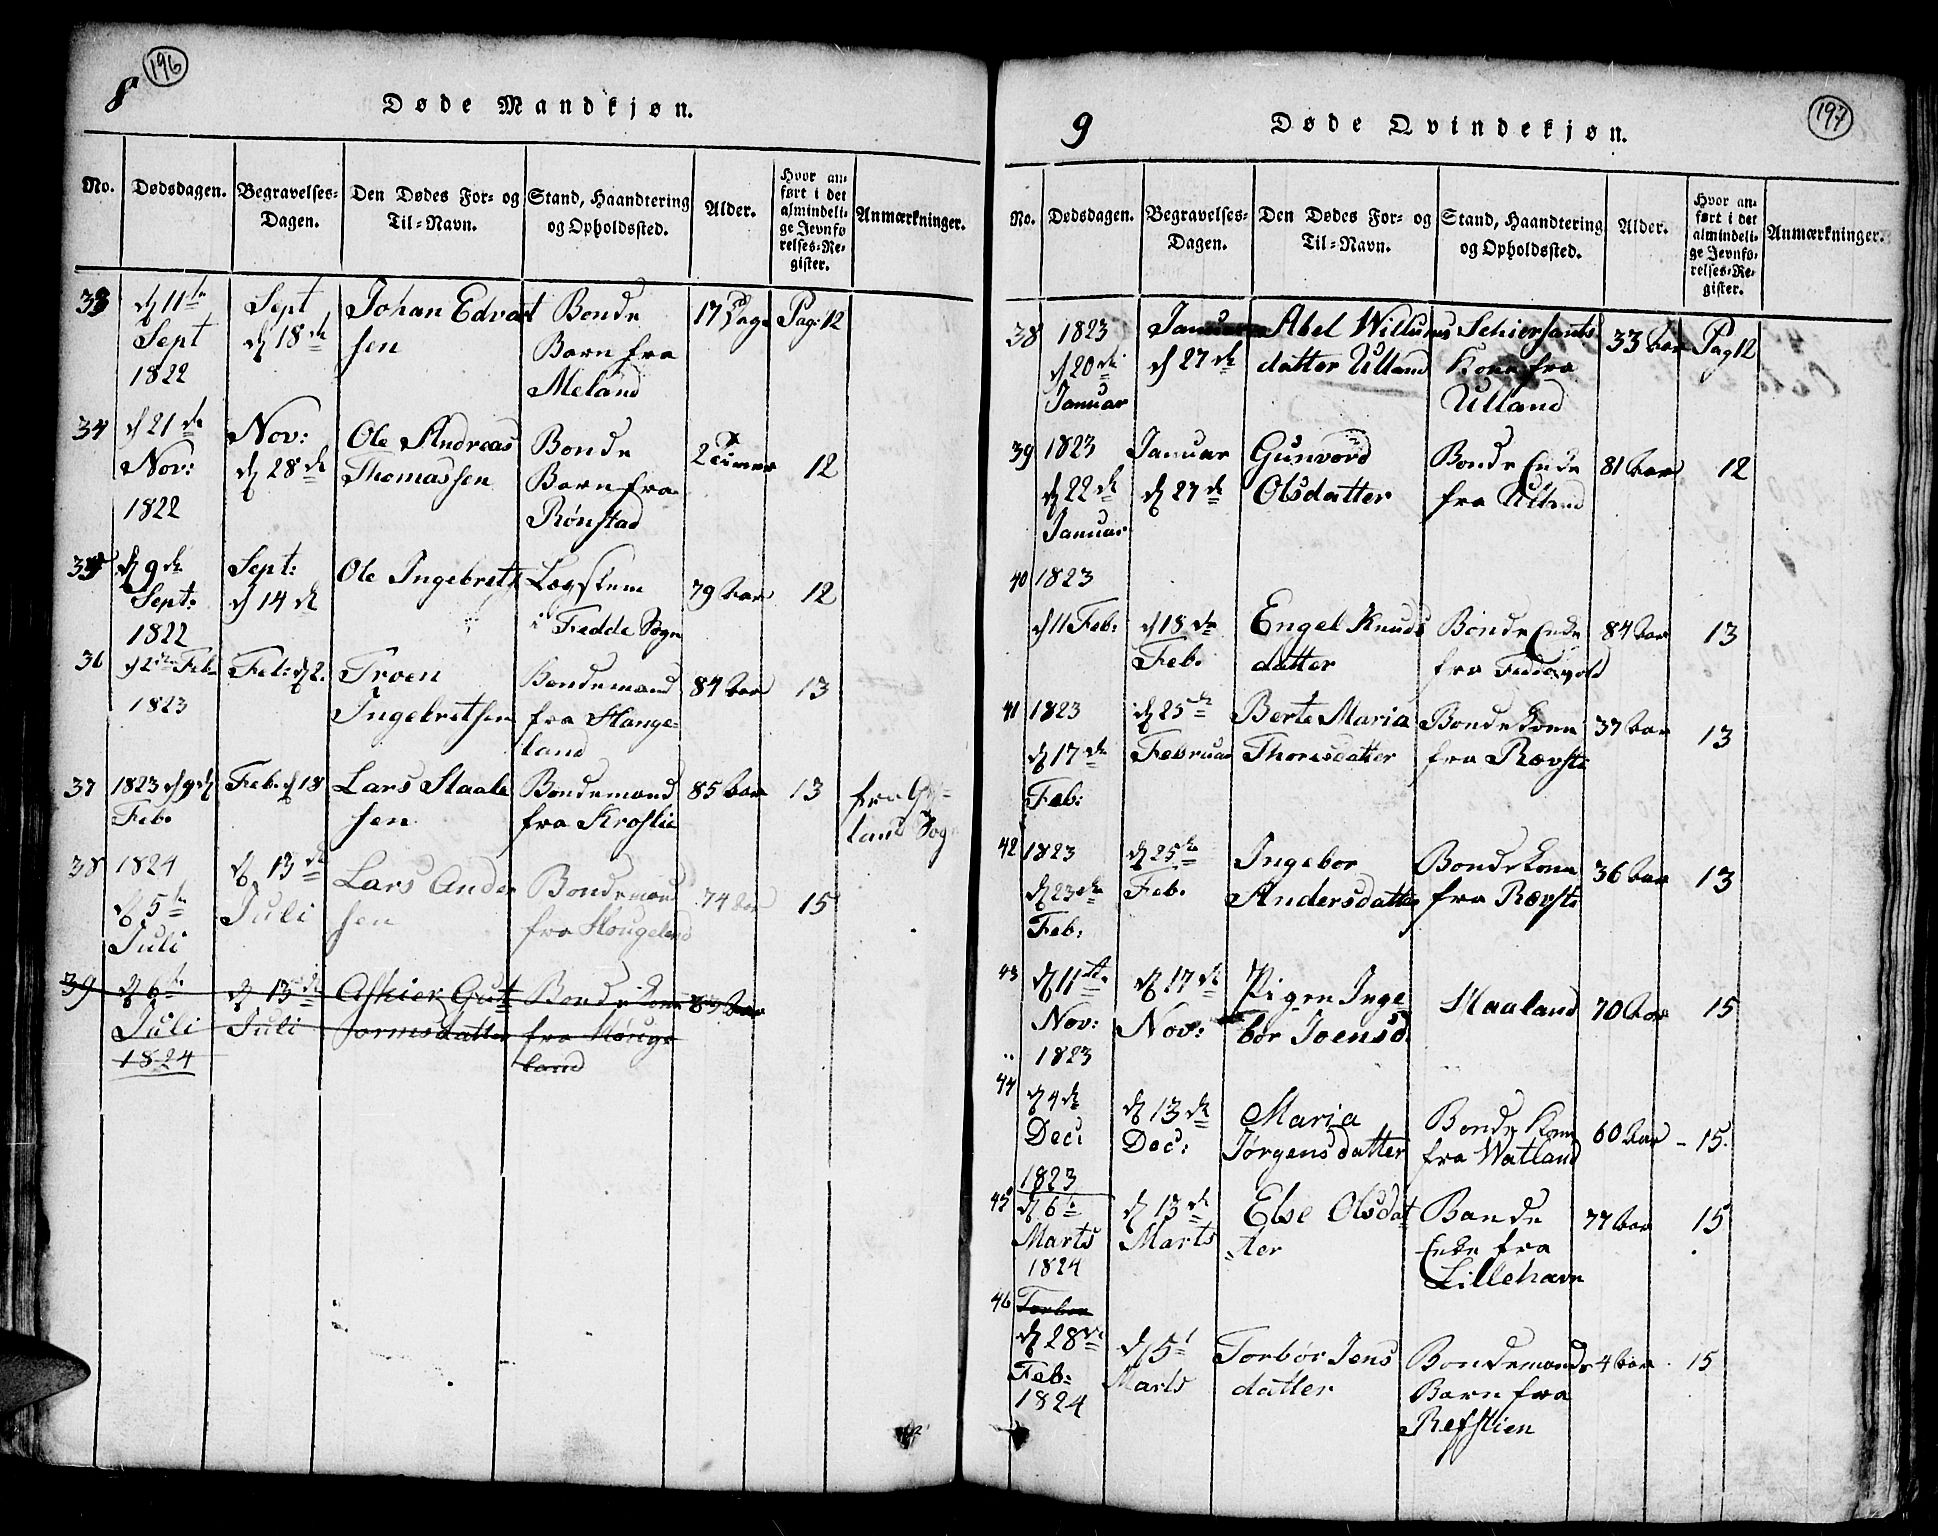 196
8
Døde Mandkjøn.
No.
Dødsdagen.
Begravelses-
Dagen.
Den Dødes For- og
Til-Navn.
Stand, Haandtering
og Opholdssted.
Alder.
Hvor an-
ført i det
almindeli-
ge Jevnfø-
relses-Re-
gister.
Anmærkninger.
33 d 11te Sept 1822
Sept d 18de
Johan Edvart
sen
Bonde
Barn fra
Meland
17 Dage
Pag: 12
34 d 21de Nov: 1822
Nov: d 28de
Ole Andreas
Thomassen
Bonde
Barn fra
Rønstad
2 Timer
12
35 d 9de Sept: 1822
Sept: d 14de
Ole Ingebrets
Lægslem
i Fedde Sogn
79 Aar
12
36 d 2den Feb. 1823
Feb: d 2.
Troen
Ingebretsen
Bondemand
fra Stange-
land
84 Aar
13
37 1823 d 9de Feb.
Feb. d 18
Lars Staale
sen
Bondemand
fra
85 Aar
13
fra Gy-
land Sogn
38 1824 d 5te Juli
d 13de Juli
Lars Ander
sen
Bondemand
fra Hougeland
74 Aar
15
39 d 6te Juli 1824
d 13de Juli
Askier Gut
tormsdatter
Bonde kone
fra Houge
land
Aar
197
9
Døde Qvindekjøn.
No.
Dødsdagen.
Begravelses-
Dagen.
Den Dødes For- og
Til-Navn.
Stand, Haandtering
og Opholdssted.
Alder.
Hvor an-
ført i det
almindeli-
ge Jevnfø-
relses-Re-
gister.
Anmærkninger.
38 1823 d 20de Januar
Januar d 27de
Abel Willums
datter Ulland
Schiersants
Kone fra
Ulland
33 Aar
Pag 12
39 1823 d 22de Januar
Januar d 27de
Gunvord
Olsdatter
Bonde Enke
fra Ulland
81 Aar
12
40 1823 d 11 Feb:
d 18de Feb.
Engel Knuds
datter
Bonde Enke
fra
84 Aar
13
41 1823 d 17de Feb:
d 25de Februar
Berte Maria
Thorisdatter
Bonde kone
fra Rævste
37 Aar
13
42 1823 d 23de Feb:
d 25de Feb.
Ingebor
Andersdatter
Bonde kone
fra Rævste
36 Aar
13
43 d 11te Nov: 1823
d 17de Nov:
Pigen Inge
bor Joensd.
Haaland
70 Aar
15
44 d 4de Dec: 1823
d 13de Dec:
Maria
Jørgensdatter
Bonde Kone
fra Watland
60 Aar
- 15.
45 d 6te Marts 1824
d 13de Marts
Else Olsdat
ter
Bonde
Enke fra
Lillehavn
77 Aar
15
46 Torbor
d 28de Feb: 1824
d 5te Marts
Torbør Jens
datter
Bondemands
Barn fra
Refstien
4 Aar
15